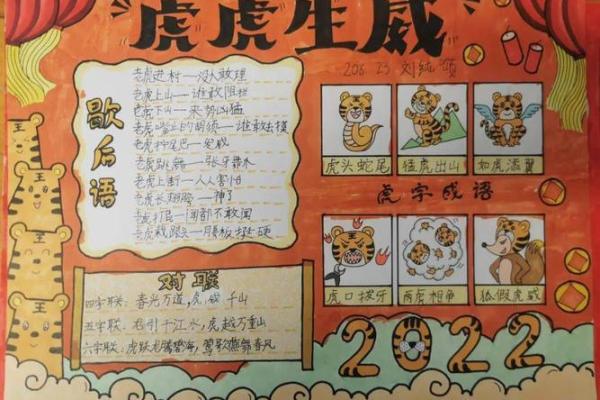 虎虎生威
208 23 刘纯颂
歇后语
老虎进村——没人敢理
老虎上山——谁敢阻拦
老虎下山——来势凶猛
老虎嘴上的胡须——谁敢去摸
老虎拧尾巴——
老虎跳舞——张牙舞爪
老虎上街——人人害怕
老虎长翅膀——神了
老虎打屁——闻都不敢闻
老虎栽跟头——腰板挺硬
虎头蛇尾
猛虎出山
如虎添翼
虎字成语
虎口拔牙
两虎相争
狐假虎威
对联
四字联:春光万道,虎 千山
五字联:龙引千江水,虎越万重山
六字联:虎跃龙腾碧海,莺歌燕舞春风
2022
王
王
王
王